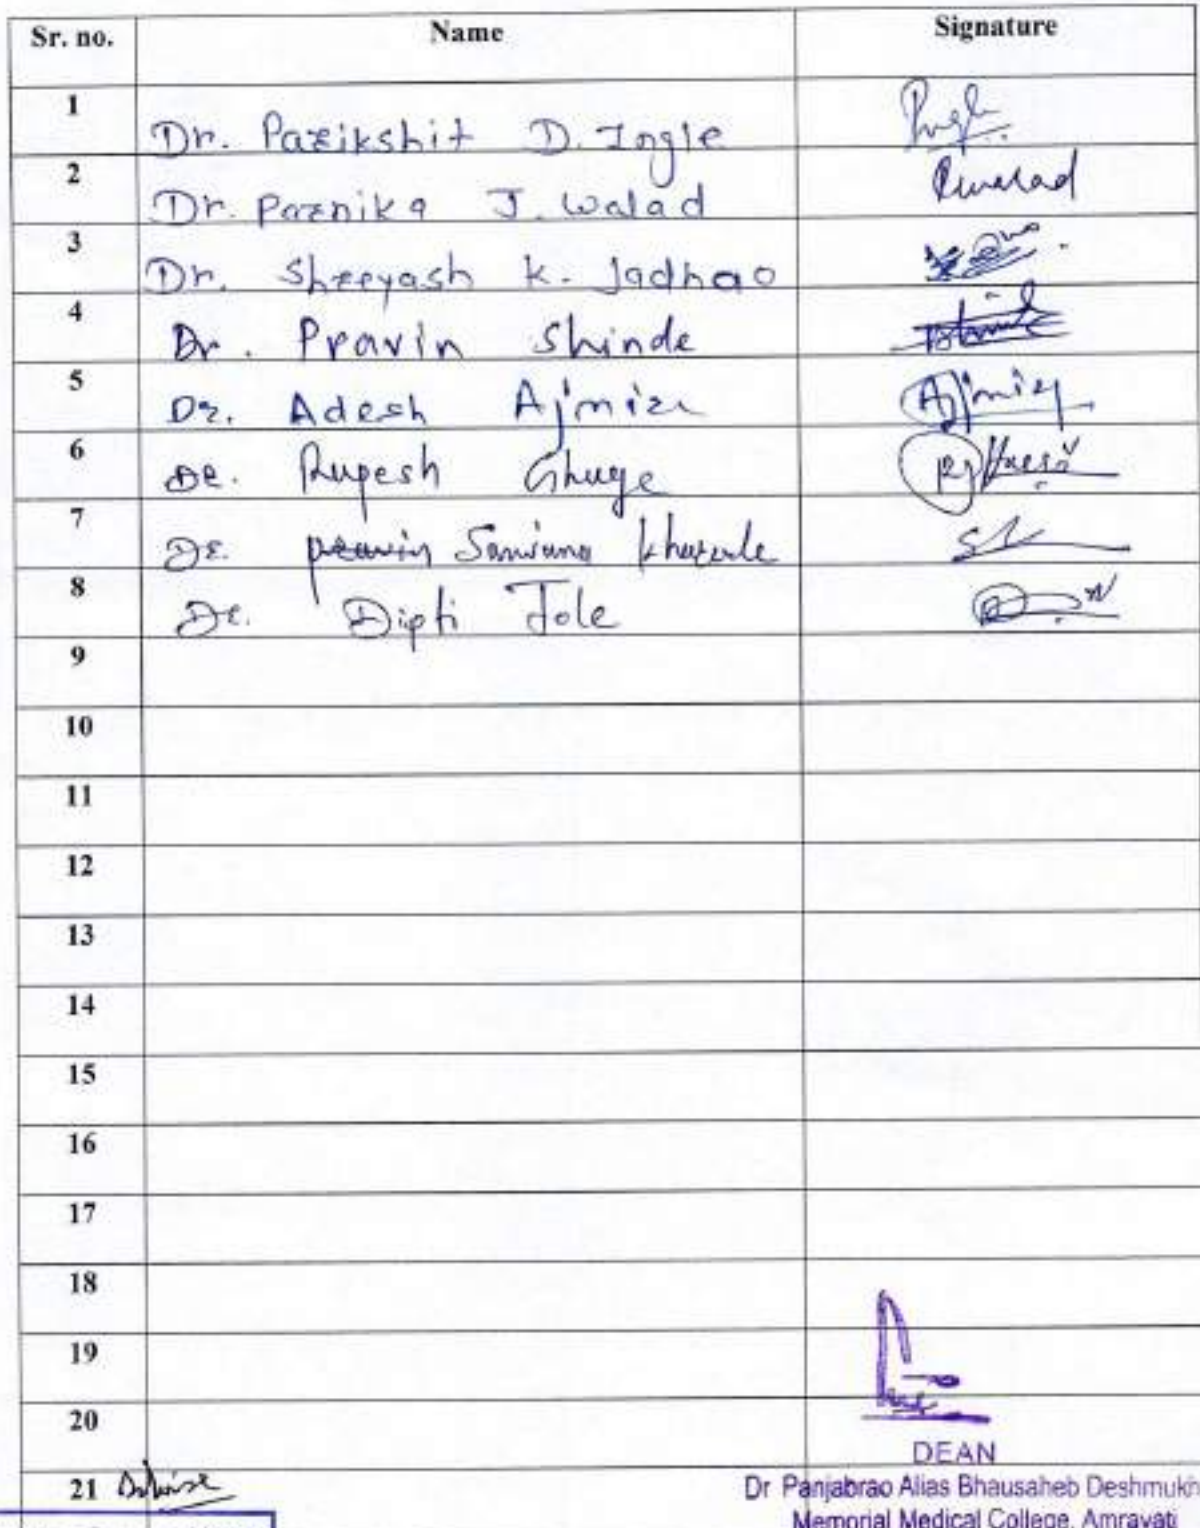 Sr. no. Name Signature
1 Dr. Parikshit D. Ingle
2 Dr. Parnika J. Walad
3 Dr. Shreyash K. Jadhao
4 Dr. Pravin Shinde
5 Dr. Adesh Ajmire
6 Dr. Rupesh Ghuge
7 Dr. Pravin Sanjana
8 Dr. Dipti Tole
9
10
11
12
13
14
15
16
17
18
19
20
21
DEAN
Dr Panjabrao Alias Bhausaheb Deshmukh
Memorial Medical College, Amravati